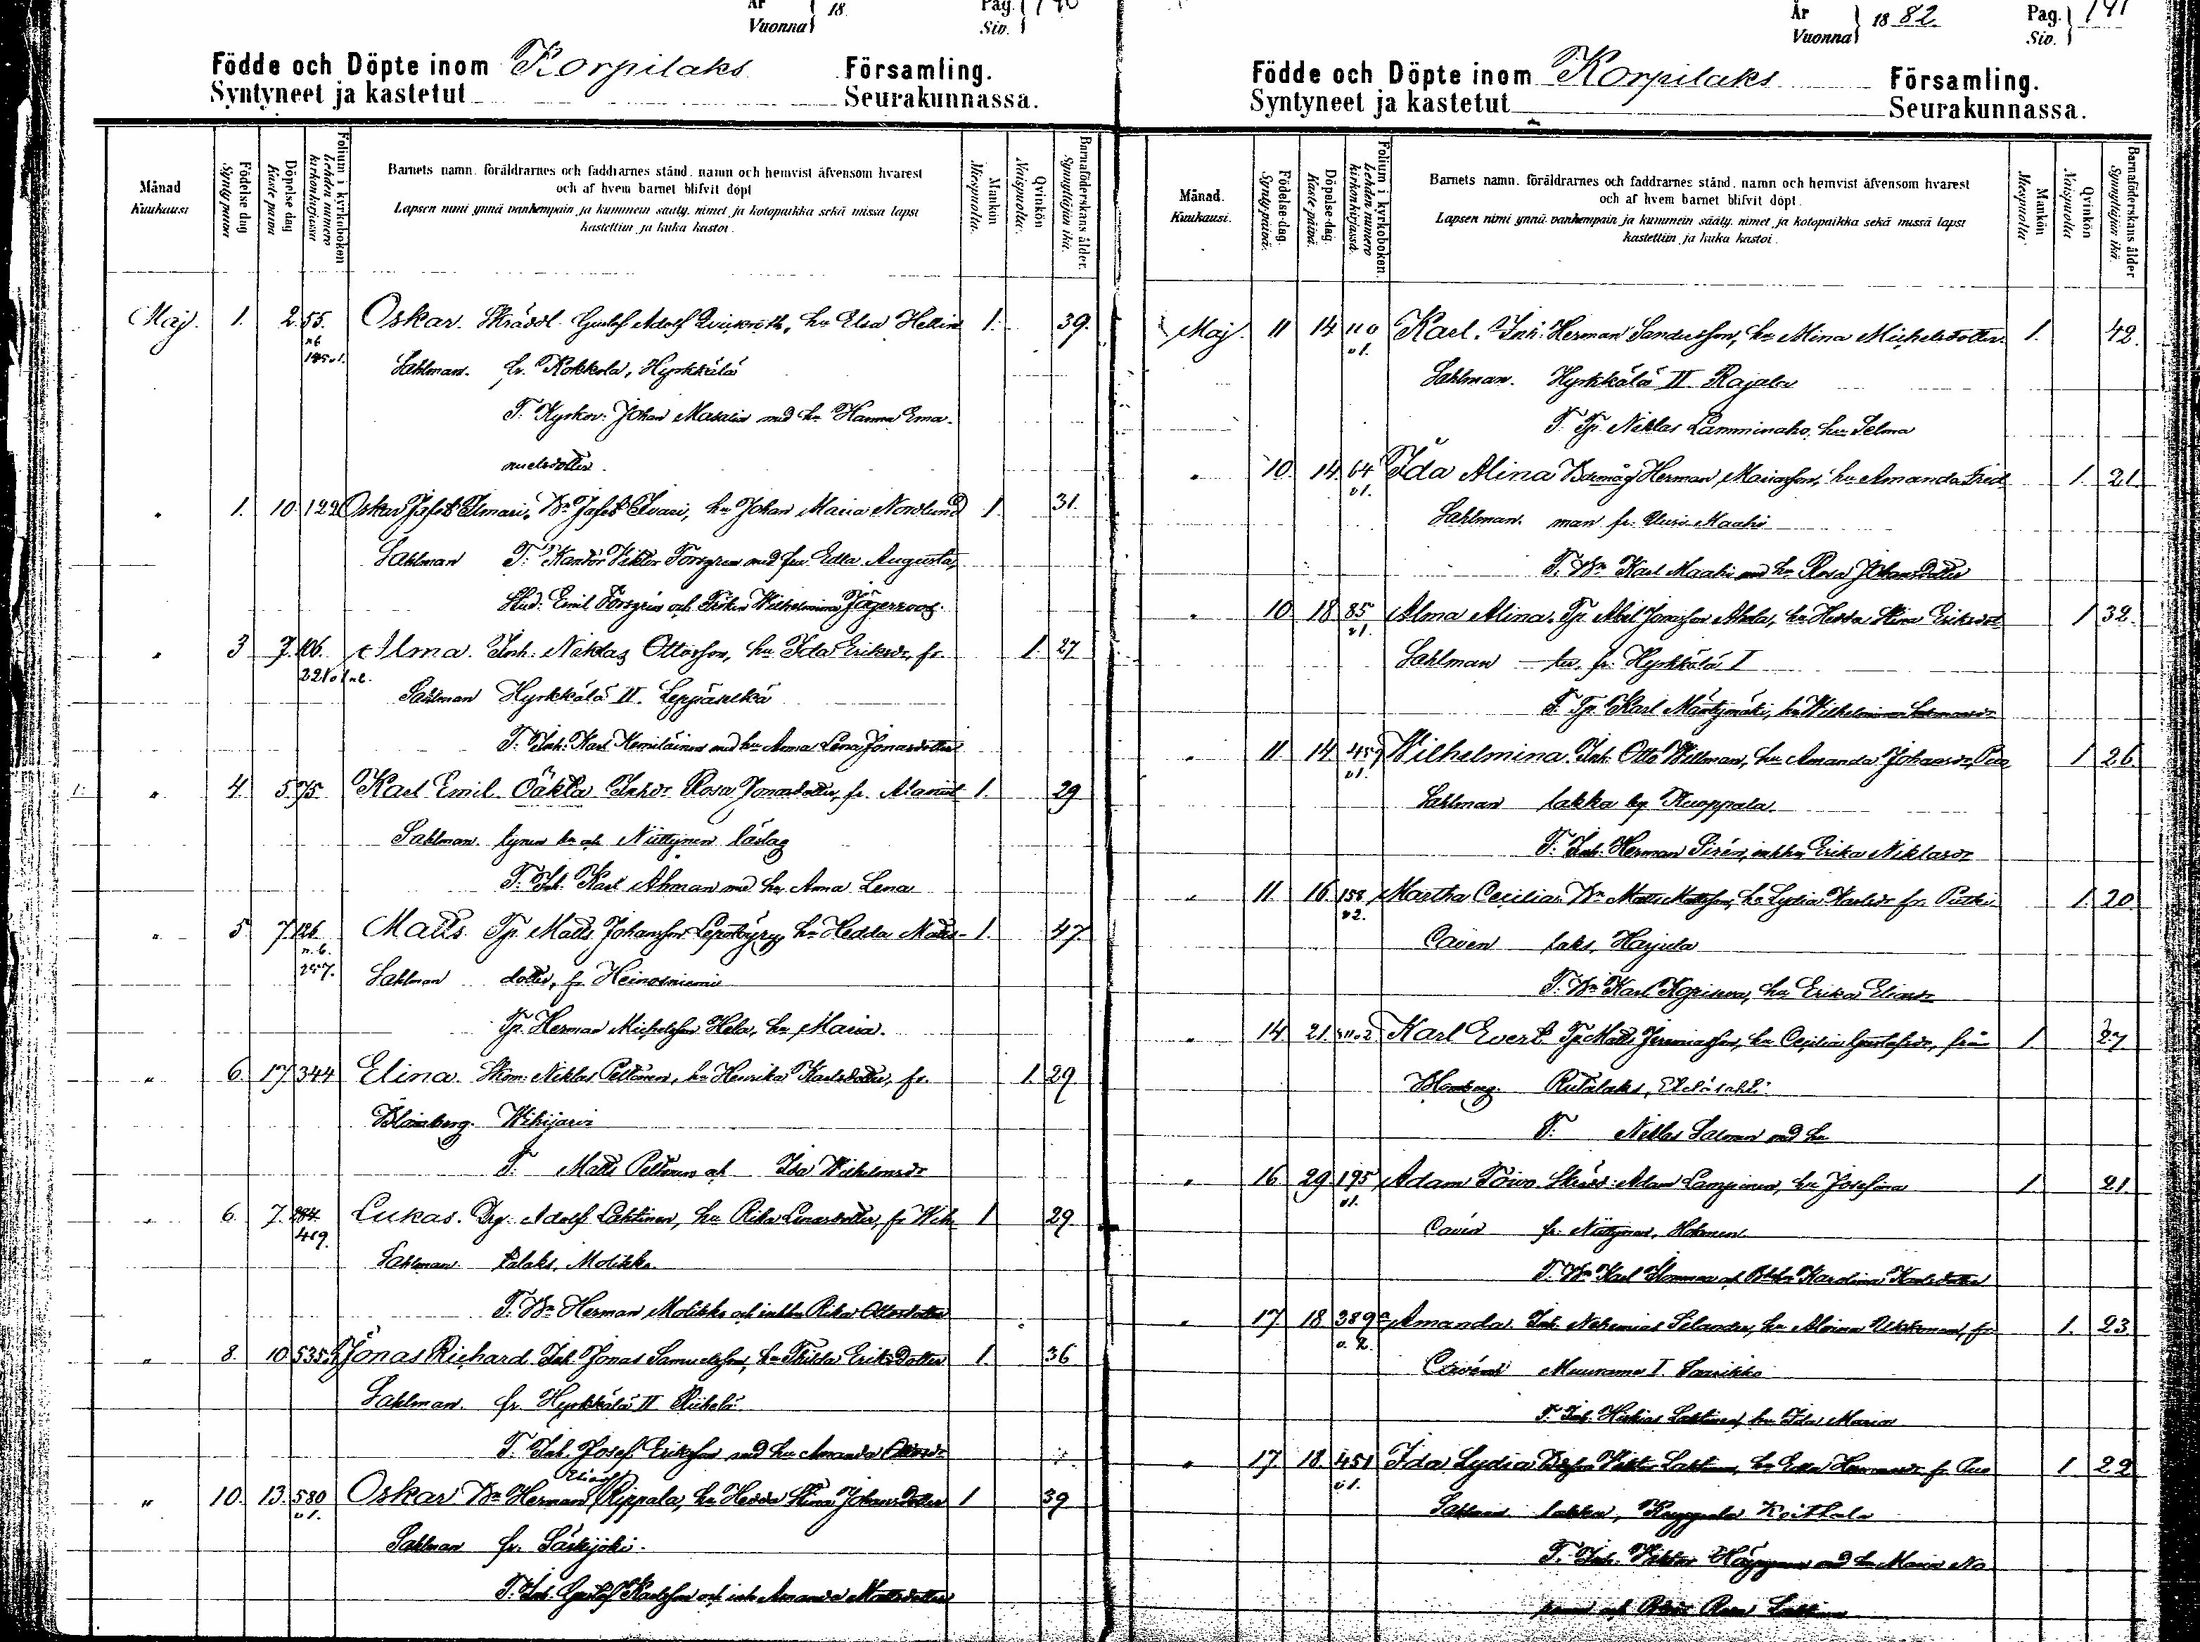 År
Vuonna } 18
Pag. } 140
Siv.
Födde och Döpte inom Korpilaks Församling.
Syntyneet ja kastetut Seurakunnassa.
Månad
Kuukausi
Födelse dag
Synty päivä
Döpelse dag
Kaste päivä
Folium i kyrkoboken
Lehden numero kirkonkirjassa
Barnets namn, föräldrarnes och faddrarnes stånd, namn och hemvist äfvensom hvarest
och af hvem barnet blifvit döpt
Lapsen nimi ynnä vanhempain ja kummein sääty, nimet ja kotopaikka sekä missä lapsi
kastettiin ja kuka kastoi.
Mankön
Miespuolia.
Qvinkön
Naispuolia.
Barnaföderskans ålder.
Synnyttäjän ikä.
Maj. 1. 2. 55. Oskar. Skrädd. Gustaf Adolf Qvickroth, hu Elsa Hellin 1. 39.
Sahlman. fr. Kokkola, Hyrkkälä
T. Kyrkov. Johan Masalin med hu Hanna Ema-
nuelsdotter.
" 1. 10 122 Oskar Jafet Ilmari, Bn Jafet Isvari, hu Johan Maria Nordlund 1. 31.
Sahlman T. Kantor Viktor Forsgren med fru Edla Augusta,
Stud. Emil Forsgren och Fröken Wilhelmina Jägerroos.
" 3 7. 106. Alma. Inh. Niklas Ottosson, hu Ida Eriksdr, fr. 1. 27
Sahlman Hyrkkälä II. Leppäselkä
T. Inh. Karl Kemiläinen med hu Anna Lena Jonasdotter
" 4. 5. 75 Karl Emil Oäkta Inhdr Rosa Jonasdotter, fr. 1. 29
Sahlman. och Niittynen läslag
T. Inh. Karl Ahman med hu Anna Lena
" 5. 7. 126. Matts. Tp. Matts Johansson hu Hedda Matts- 1. 47.
n. b.
257.
Sahlman dotter, fr. Heinosniemi
Tp. Herman Michelsson Hela, hu Maria.
" 6. 17 344 Elina. Niklas Peltonen, hu Henrika Karlsdotter, fr. 1. 29
Blomberg. Wihijärvi
T. Matts Peltonen och Ida Wilhelmsdr
" 6. 7. 284. Lukas. Drg. Adolf Lahtinen, hu Rika Lenasdotter, fr Wih 1 29
419.
Sahlman. talaks, Molikka
T. Bn Herman Molikka och inhhu Rika Ottosdotter
" 8. 10 535. Jonas Richard. Inh Jonas Samuelsson, hu Thilda Eriksdotter 1. 36
Sahlman. fr. Hyrkkälä II Riihelä
T. Inh. Josef Eriksson med hu Amanda Ottosdr
" 10. 13. 580 Oskar Bn Herman Eliasson Rippala, hu Hedda Stina Johansdotter 1 39
Sahlman fr. Särkijoki.
T. Inh. Gustaf Karlsson och inh Amanda Mattsdotter
År
Vuonna } 1882.
Pag. } 141
Siv.
Födde och Döpte inom Korpilaks Församling.
Syntyneet ja kastetut Seurakunnassa.
Månad.
Kuukausi.
Födelse-dag.
Synty päivä.
Döpelse-dag.
Kaste päivä.
Folium i kyrkoboken.
Lehden numero kirkonkirjassa.
Barnets namn, föräldrarnes och faddrarnes stånd, namn och hemvist äfvensom hvarest
och af hvem barnet blifvit döpt.
Lapsen nimi ynnä vanhempain ja kummein sääty, nimet ja kotopaikka sekä missä lapsi
kastettiin ja kuka kastoi.
Mankön
Miespuolia.
Qvinkön
Naispuolia
Barnaföderskans ålder
Synnyttäjän ikä.
Maj. 11 14 110 Karl. Inh. Herman Sandersson, hu Mina Michelsdotter 1. 42.
v1.
Sahlman. Hyrkkälä II Rajala
T. Tp. Niklas Lamminaho, hu Selma
" 10. 14. 64 Ida Alina Herman Mariasson, hu Amanda Frid 1. 21.
v1.
Sahlman. man fr. Maahi
T. Bn Karl Maahi med hu Rosa Johansdotter
" 10. 18 85 Alma Alina. Tp. Abel Jonasson Ahola, hu Hedda Stina Eriksdot 1 32.
v1.
Sahlman ter, fr. Hyrkkälä I
T. Tp. Karl Mäntymäki, hu Wilhelmina
" 11. 14 457 Wilhelmina. Inh. Otto Willman, hu Amanda Johansdr, 1 26.
v1.
Sahlman lakka by Kuoppala.
T. Inh. Herman Sirén, inhhu Erika Niklasdr
" 11. 16. 158 Martha Cecilia. Bn Matts Mattsson, hu Lydia Karlsdr fr. Putki- 1. 20.
v2.
Cavén laks, Harjula
T. Bn Karl hu Erika Eliasdr
" 14. 21. Karl Evert. Tp. Matts Jeremiasson, hu Cecilia Gustafsdr, från 1. 27
Blomberg. Rutalaks,
T. Niklas Salonen med hu
" 16 29 195 Adam Toivo. Adam Lampinen, hu Josefina 1. 21.
v1.
Cavén fr. Niittynen,
T. Bn Karl och Karolina Karlsdotter
" 17. 18 389 Amanda. Inh. Nehemias Silander, hu fr 1. 23.
v. 2.
Cavén Muurame I.
T. Inh. Hiskias Lahtinen, hu Ida Maria
" 17. 18. 451 Ida Lydia Viktor Lahtinen, hu Edla fr. 1 22
v1.
Sahlman lakka, Koithala
T. Inh. Viktor med hu Maria